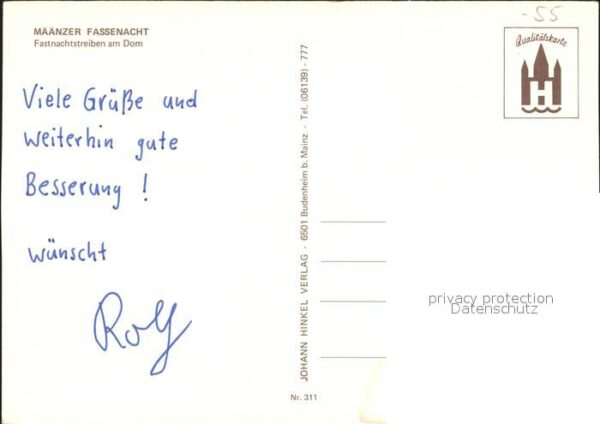 MÄÄNZER FASSENACHT
Fastnachtstreiben am Dom
Viele Grüße und
weiterhin gute
Besserung !
wünscht
Rolf
JOHANN HINKEL VERLAG - 6501 Budenheim b. Mainz - Tel. (06139) - 777
Nr. 311
-55
Qualitätskarte
H
privacy protection
Datenschutz